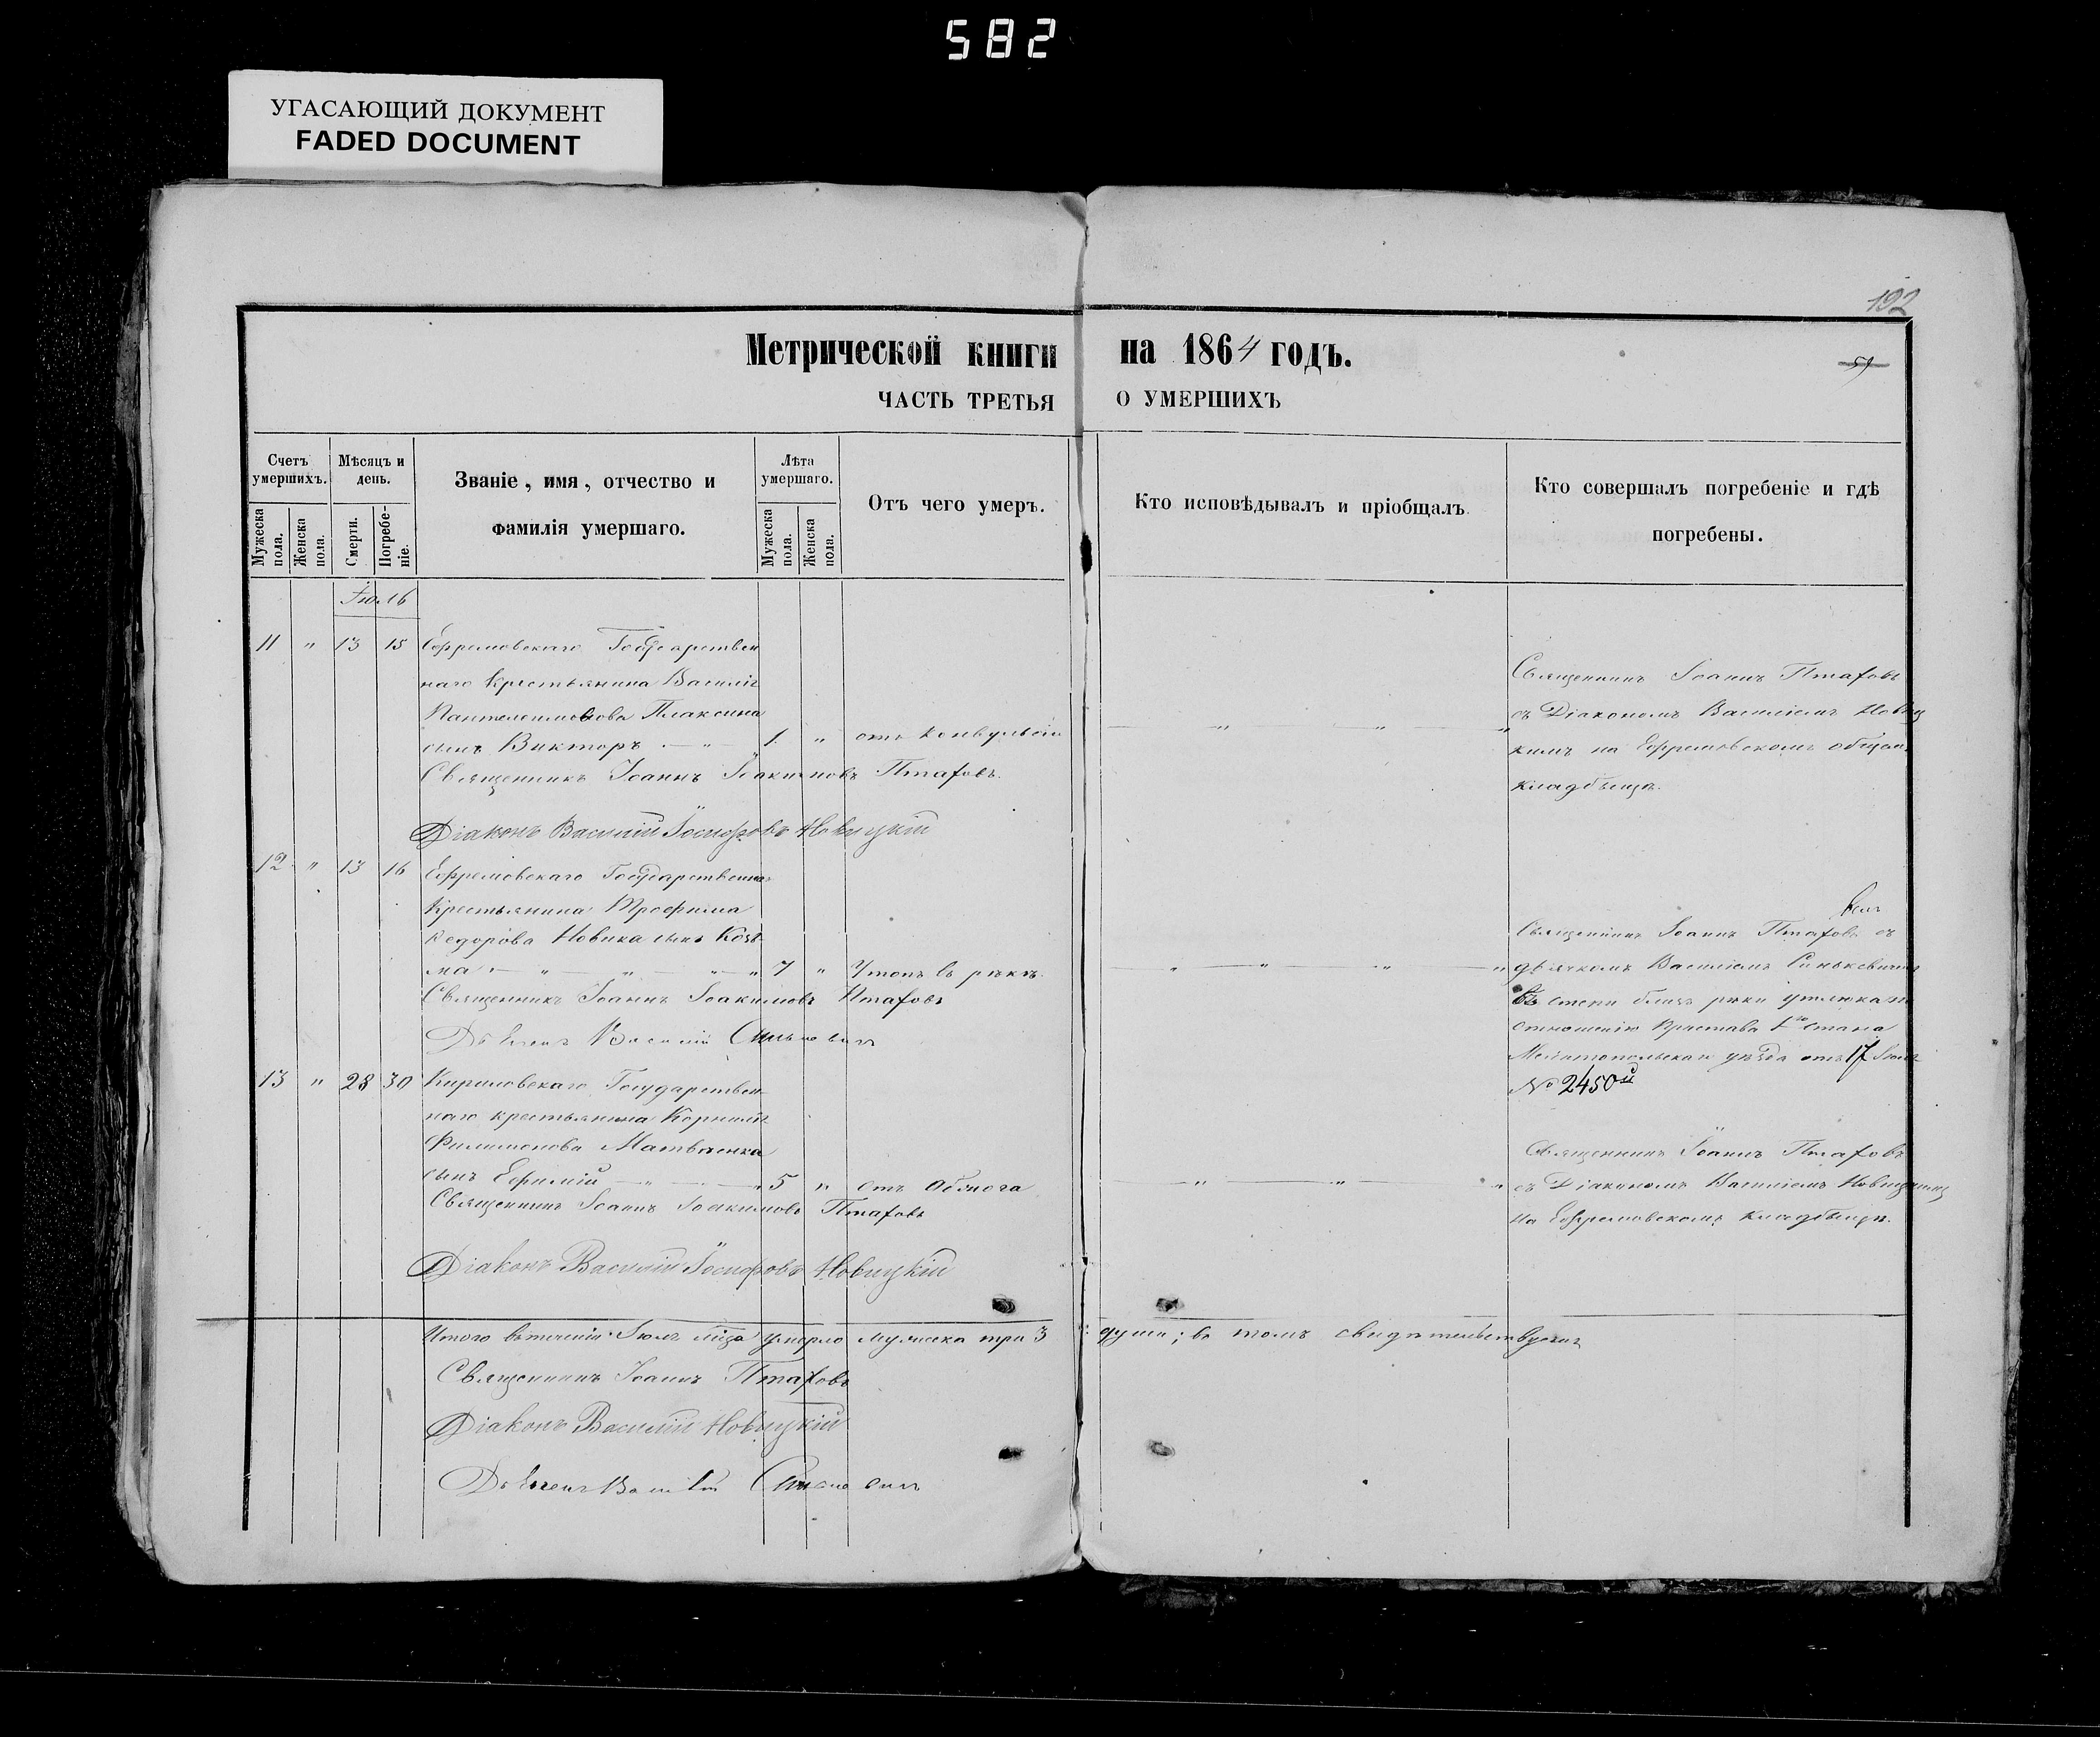 582
УГАСАЮЩИЙ ДОКУМЕНТ
FADED DOCUMENT
192
Метрической книги на 1864 годъ.
59
ЧАСТЬ ТРЕТЬЯ О УМЕРШИХЪ
Счетъ умершихъ.
Мужеска пола.
Женска пола.
Мѣсяцъ и день.
Смерти.
Погребе-ніе.
Званіе, имя, отчество и
фамилія умершаго.
Лѣта умершаго.
Мужеска пола.
Женска пола.
Отъ чего умеръ.
Кто исповѣдывалъ и пріобщалъ.
Кто совершалъ погребеніе и гдѣ
погребены.
Іюль
11 " 13 15 Ефремовскаго Государствен
наго крестьянина Василія
Пантелеимонова Плаксина
сынъ Викторъ — " — 1. " отъ конвульсіи
Священникъ Іоаннъ Іоакимовъ Птаховъ.
Діаконъ Василій Іосифовъ Новицкій
Священникъ Іоаннъ Птаховъ
съ Діакономъ Василіемъ Новиц
кимъ на Ефремовскомъ общем.
кладбищѣ.
12 " 13 16 Ефремовскаго Государственна
крестьянина Трофима
Федорова Новика сынъ Козь
ма — " — " — " — " 7 " Утопъ въ рѣкѣ.
Священникъ Іоаннъ Іоакимовъ Птаховъ
Дьячекъ Василій Синькевичъ
Священникъ Іоаннъ Птаховъ съ
дьячкомъ Василіемъ Синькевичемъ
въ степи близъ рѣки утлюка по
отношенію Пристава 1го стана
Мелитопольскаго уѣзда отъ 17 Іюля
№ 2450й
13 " 28 30 Кириловскаго Государствен
наго крестьянина Корнилія
Филимонова Матвѣенка
сынъ Ефимій — " — " 5 " отъ Обжога
Священникъ Іоаннъ Іоакимовъ Птаховъ
Діаконъ Василій Іосифовъ Новицкій
Священникъ Іоаннъ Птаховъ
съ Діакономъ Василіемъ Новицкимъ
на Ефремовскомъ кладбищѣ.
Итого втеченіи Іюля м-ца умерло мужеска три 3 души; въ томъ свидѣтельствуемъ
Священникъ Іоаннъ Птаховъ
Діаконъ Василій Новицкій
Дьячекъ Василій Синькевичъ